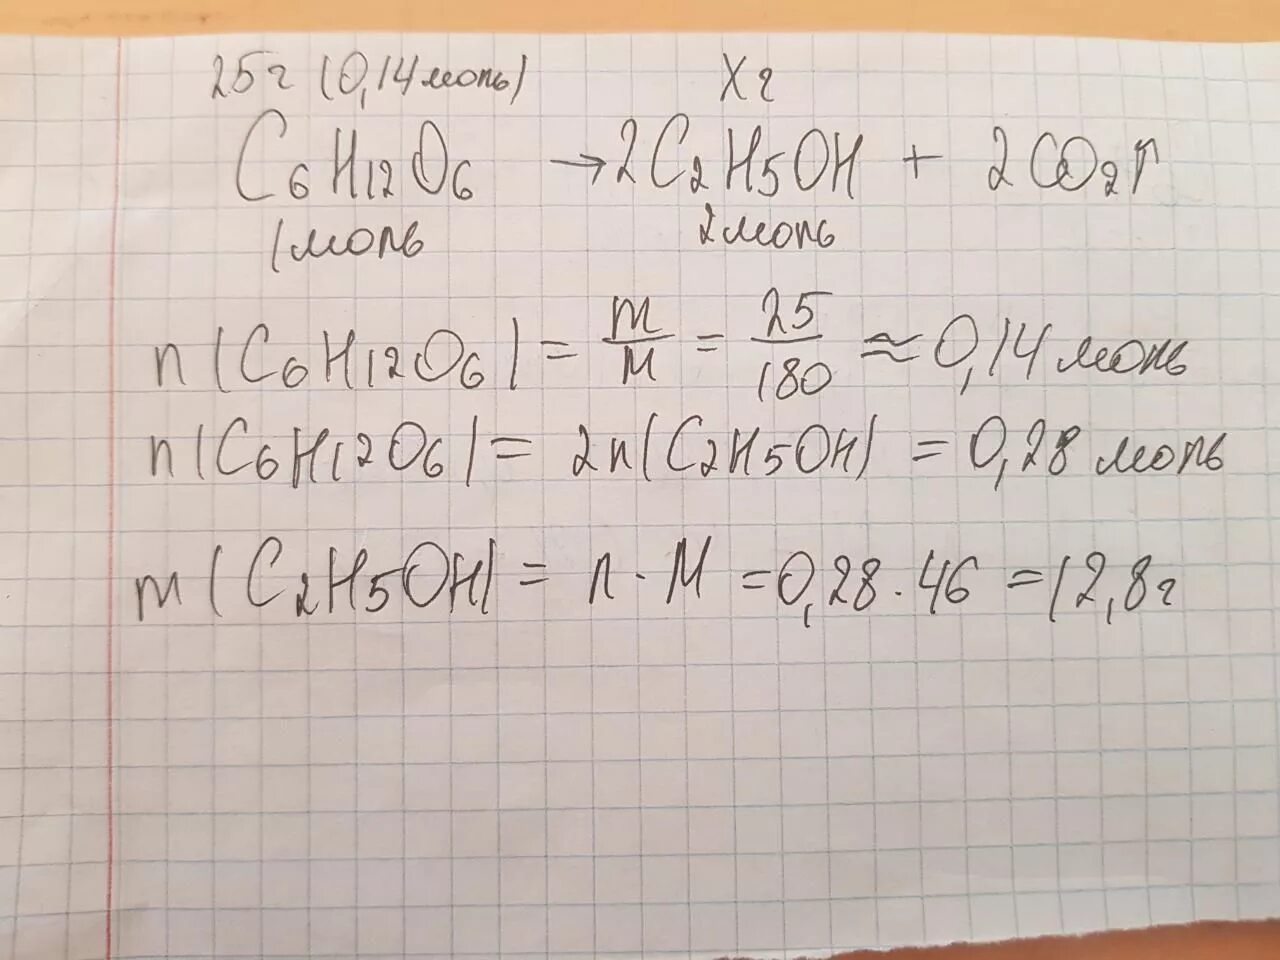 25г (0,14моль) Xг
C6H12O6 → 2C2H5OH + 2CO2↑
1моль 2моль
n(C6H12O6) = m/M = 25/180 ≈ 0,14 моль
n(C6H12O6) = 2n(C2H5OH) = 0,28 моль
m(C2H5OH) = n · M = 0,28 · 46 = 12,8г